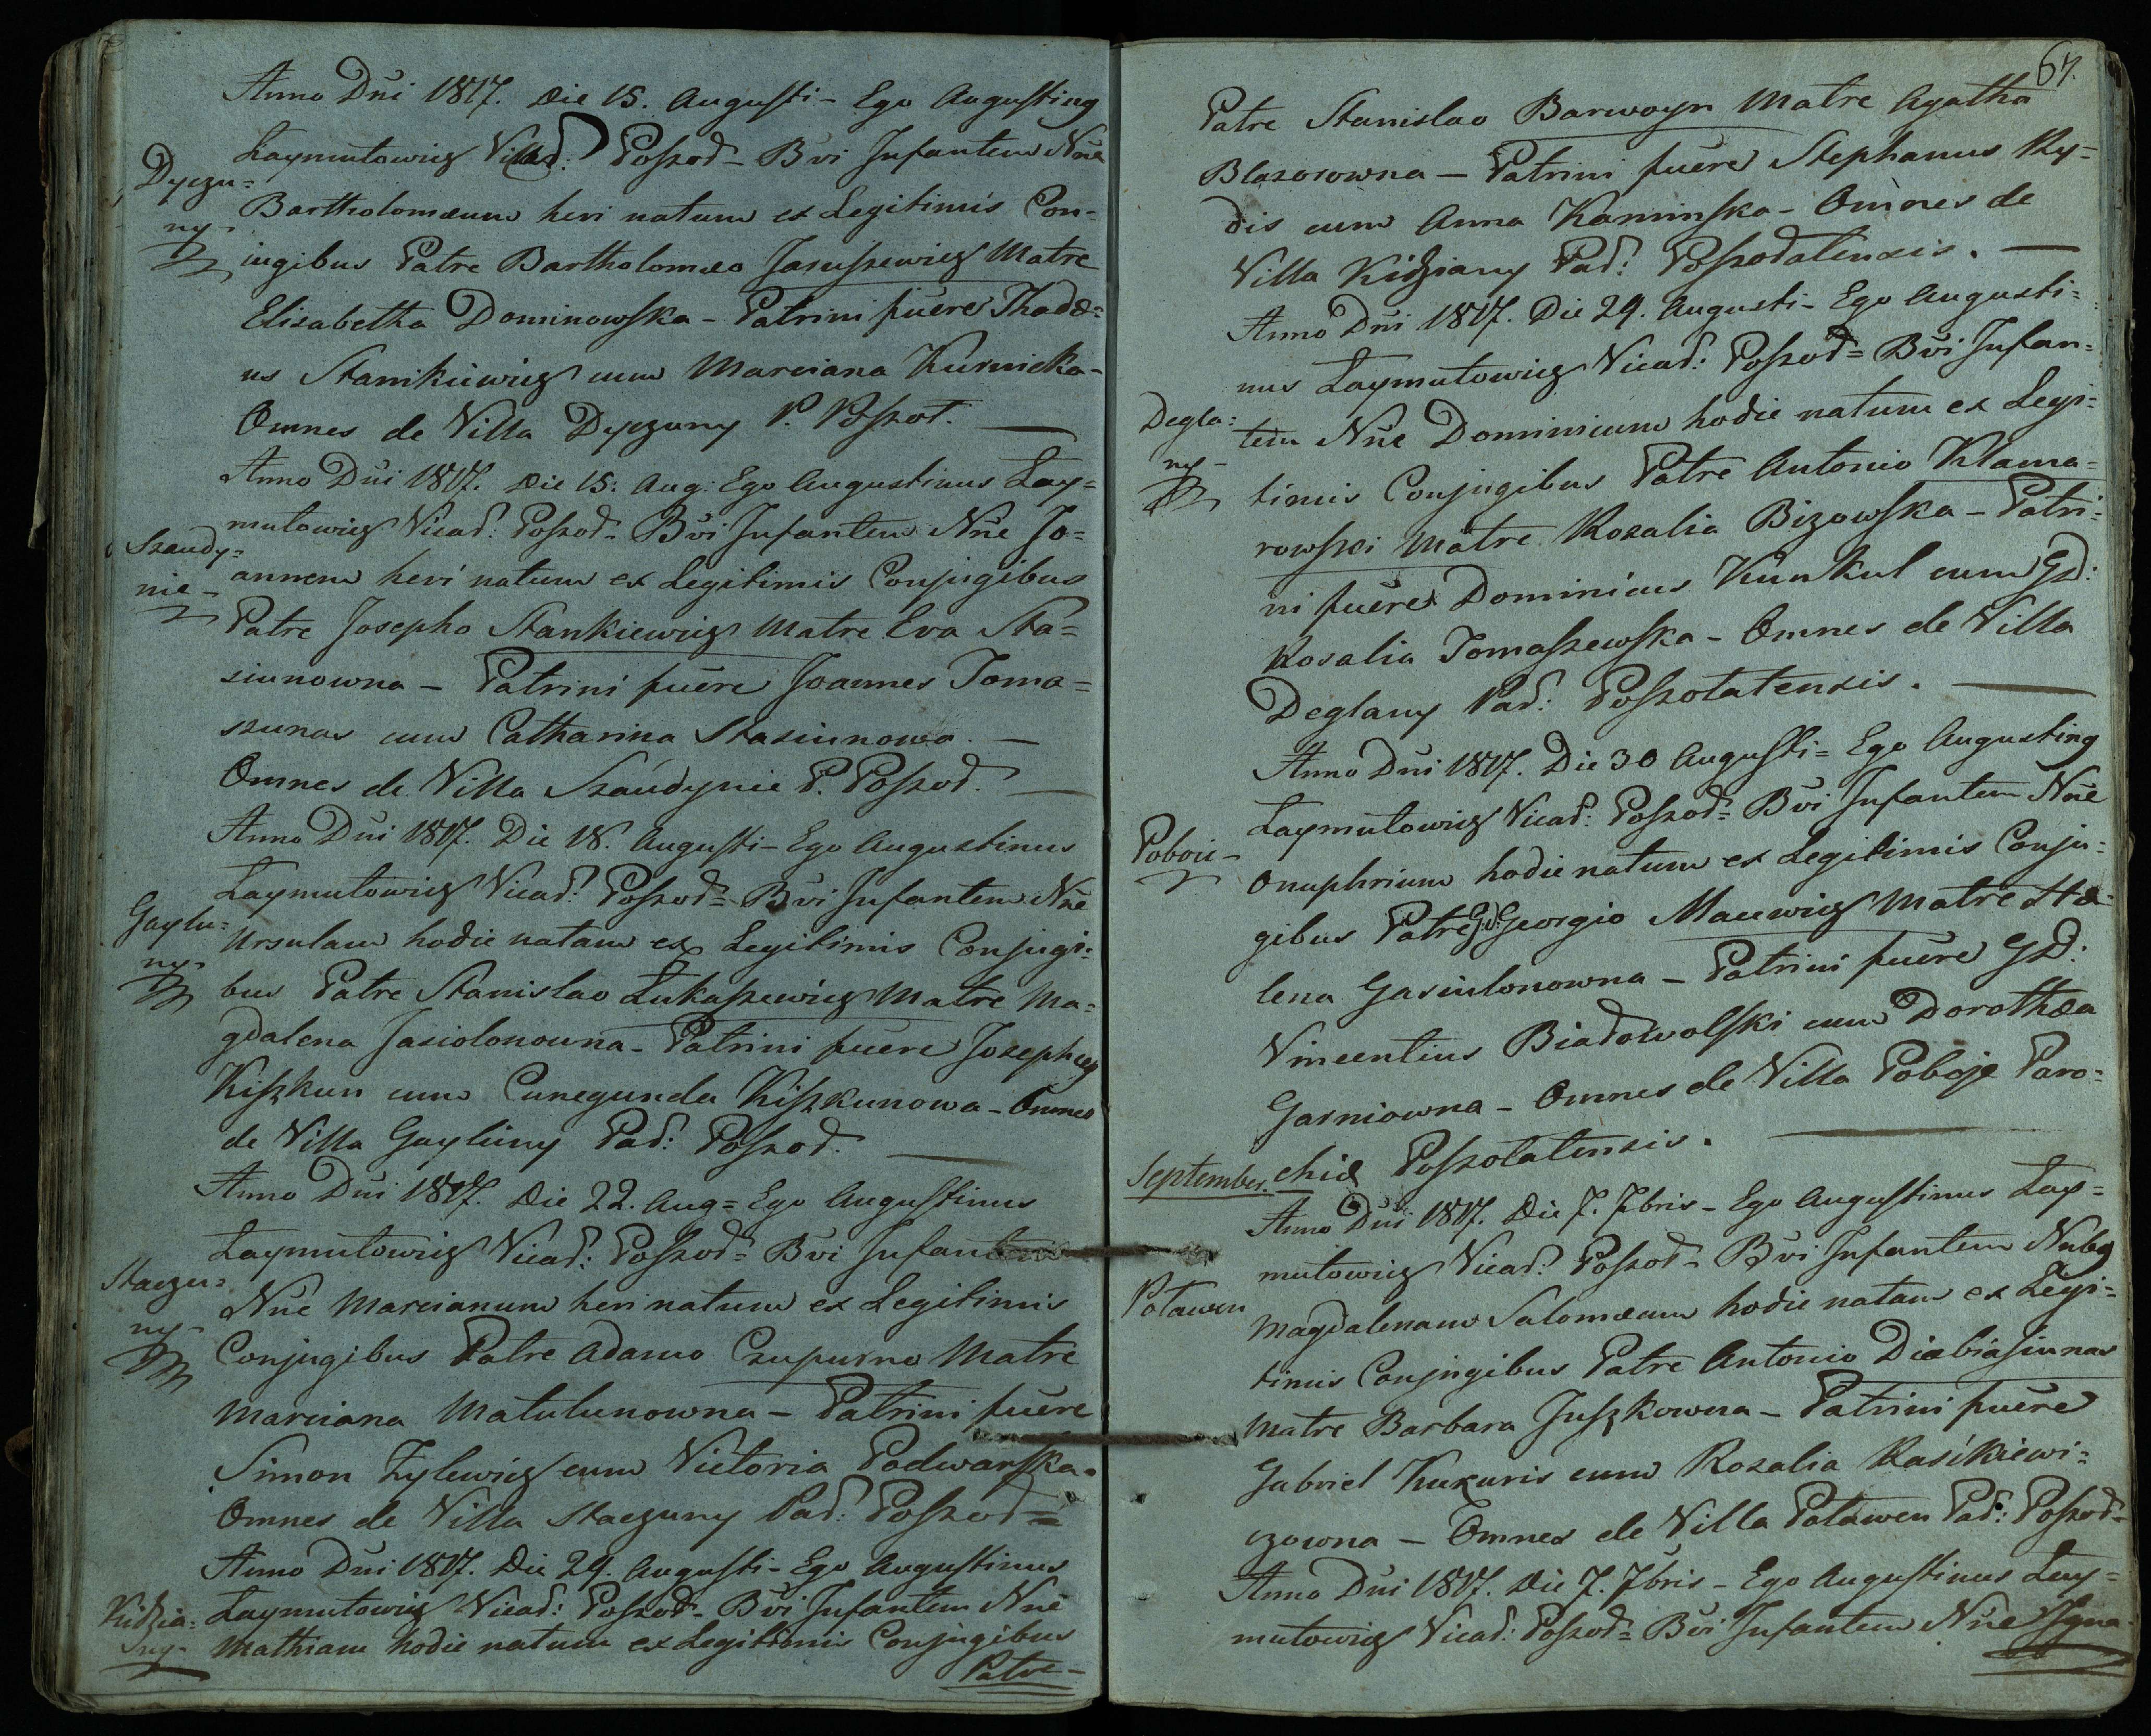 Anno Dni 1817. Die 15. Augusti - Ego Augustinus
Laymutowicz Vicad: Poszod - Bvi Infantem Nne
Dyczu=
ny
Bartholomæum heri natum ex Legitimis Con-
iugibus Patre Bartholomæo Jaruszewicz Matre
Elisabetha Dominowska - Patrini fuere Thadæ=
us Stankiewicz cum Marciana Kurnicka -
Omnes de Villa Dyczuny P. Poszot.
Anno Dni 1817. Die 15. Aug: Ego Augustinus Lay=
mutowicz Vicad: Poszod - Bvi Infantem Nne Jo=
Szaudy=
nie -
annem heri natum ex Legitimis Conjugibus
Patre Josepho Stankiewicz Matre Eva Sta=
siunowna - Patrini fuere Joannes Toma=
szunas cum Catharina Stasiunowa. -
Omnes de Villa Szaudynie P. Poszod.
Anno Dni 1817. Die 18. Augusti - Ego Augustinus
Laymutowicz Vicad: Poszod = Bvi Infantem Nne
Gaylu=
ny
Ursulam hodie natam ex Legitimis Conjugi=
bus Patre Stanislao Lukaszewicz Matre Ma=
gdalena Jasiolonowna - Patrini fuere Josephus
Kiszkun cum Cunegunda Kiszkunowa - Omnes
de Villa Gayluny Pad: Poszod.
Anno Dni 1817. Die 22. Aug = Ego Augustinus
Laymutowicz Vicad: Poszod = Bvi Infantem
Staczu=
ny
Nne Marcianum heri natum ex Legitimis
Conjugibus Patre Adamo Czupurno Matre
Marciana Matulunowna - Patrini fuere
Simon Zylewicz cum Victoria Podwarska.
Omnes de Villa Staczuny Pad: Poszod =
Anno Dni 1817. Die 29. Augusti - Ego Augustinus
Kidzia=
ny -
Laymutowicz Vicad: Poszod - Bvi Infantem Nne
Mathiam hodie natum ex Legitimis Conjugibus
Patre -
67.
Patre Stanislao Barwoyn Matre Agatha
Blazosowna - Patrini fuere Stephanus Ry=
dis cum Anna Kaminska - Omnes de
Villa Kidziany Pad: Poszodatensis. -
Anno Dni 1817. Die 29. Augusti - Ego Augusti=
nus Laymutowicz Vicad: Poszod = Bvi Infan=
Degla=
ny -
tem Nne Dominicum hodie natum ex Legi=
timis Conjugibus Patre Antonio Klama=
rowski Matre Rozalia Bizowska - Patri=
ni fuere Dominicus Kunkul cum GD:
Rosalia Tomaszewska - Omnes de Villa
Deglany Pad: Poszotatensis.
Anno Dni 1817. Die 30 Augusti = Ego Augustinus
Laymutowicz Vicad: Poszod = Bvi Infantem Nne
Poboie -
Onuphrium hodie natum ex Legitimis Conju=
gibus Patre G.D. Georgio Macewicz Matre He=
lena Gasiulonowna - Patrini fuere GD:
Vincentius Biadowolski cum Dorothæa
Garniowna - Omnes de Villa Poboje Paro=
chiæ Poszotatensis.
September.
Anno Dni 1817. Die 7. 7bris - Ego Augustinus Lay=
mutowicz Vicad: Poszod - Bvi Infantem Nubg
Potawen
Magdalenam Salomæam hodie natam ex Legi=
timis Conjugibus Patre Antonio Diabiasiunas
Matre Barbara Juszkowna - Patrini fuere
Gabriel Kukuris cum Rozalia Rasikiewi=
czowna - Omnes de Villa Potawen Pad: Poszod =
Anno Dni 1817. Die 7. 7bris - Ego Augustinus Lay=
mutowicz Vicad: Poszod = Bvi Infantem Nne Igna